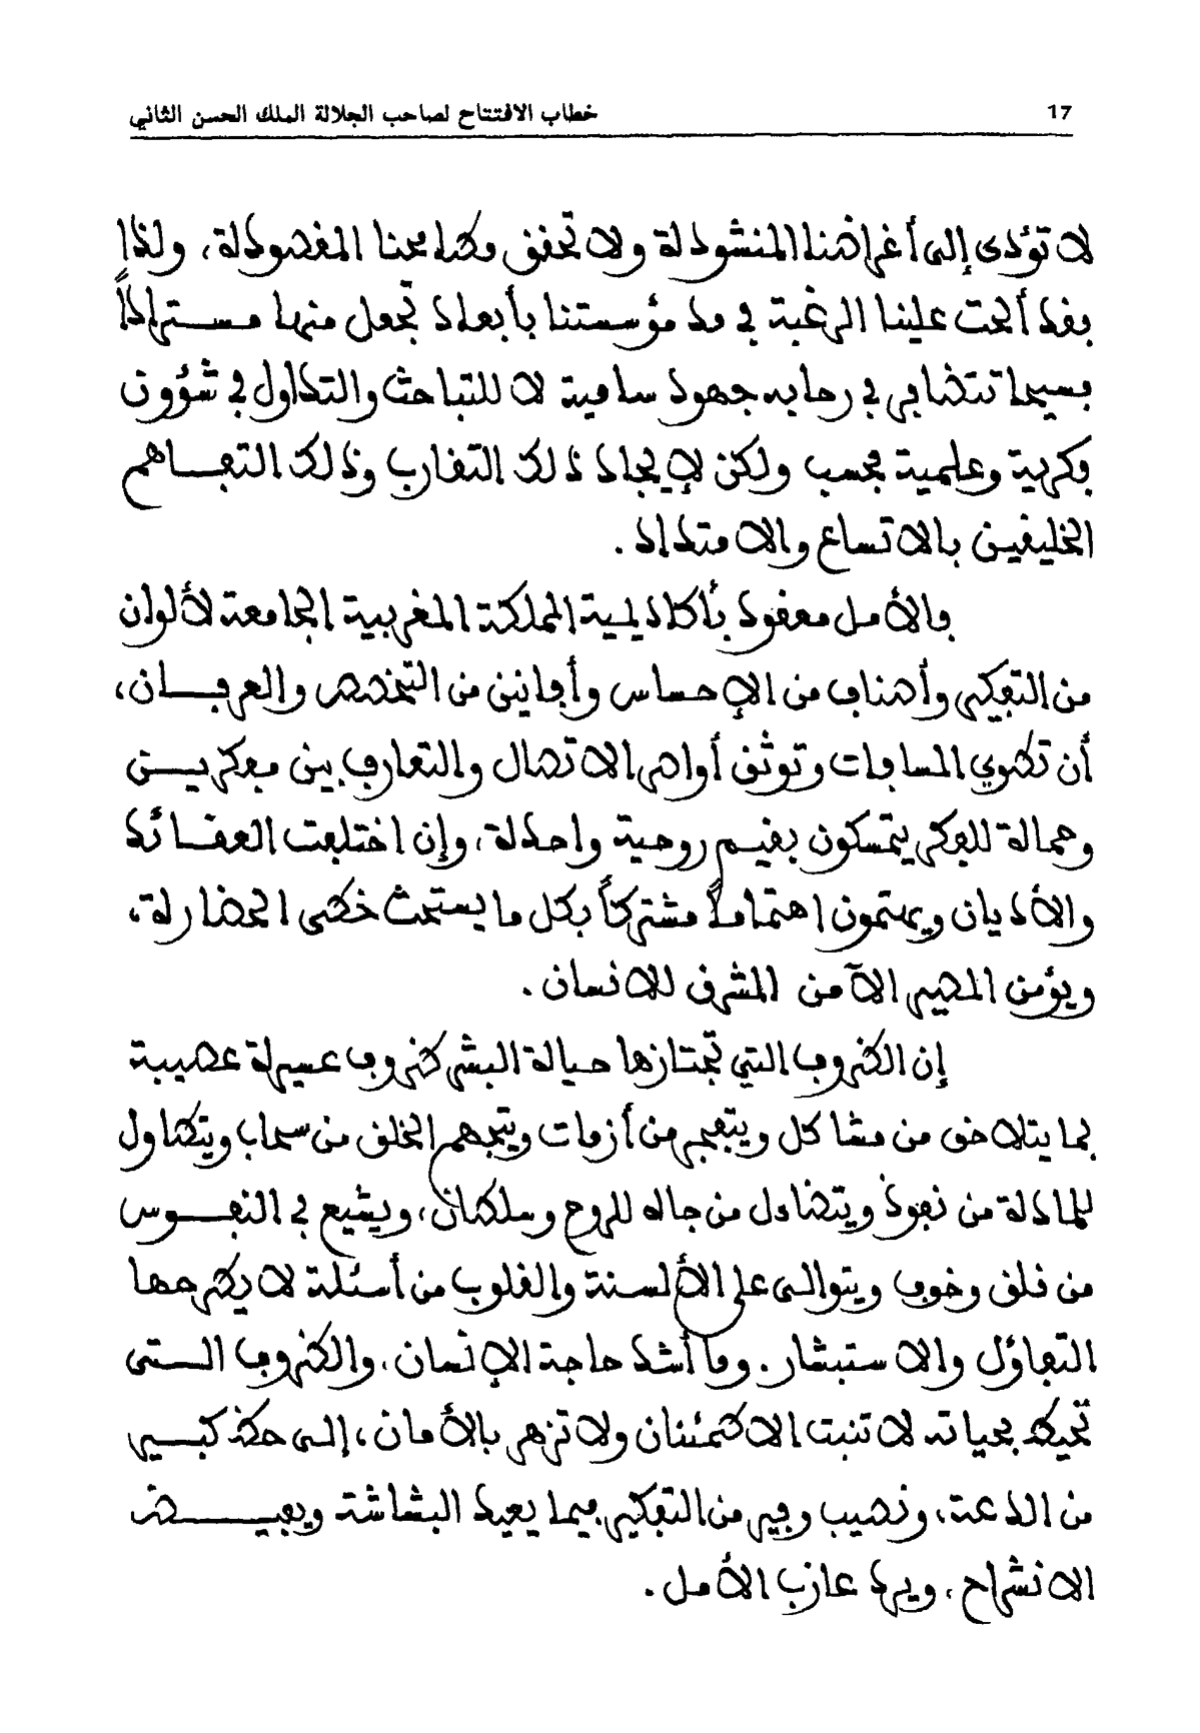 17
خطاب الافتتاح لصاحب الجلالة الملك الحسن الثاني
لا تؤدى إلى أغراضنا المنشودة ولا تحقق مطامحنا المقصودة، ولذا
فقد ألحت علينا الرغبة في مد مؤسستنا بأبعاد تجعل منها مستراداً
فسيحا تتضافر في رحابه جهود سامية لا للتباحث والتداول في شؤون
فكرية وعلمية فحسب ولكن لإيجاد ذلك التقارب وذلك التفاهم
الخليقين بالاتساع والامتداد.
فالأمل معقود بأكاديمية المملكة المغربية الجامعة لألوان
من التفكير وأصناف من الإحساس وأفانين من التخصص والعرفان،
أن تطوي المسافات وتوثق أواصر الاتصال والتعارف بين مفكرين
وحملة للفكر يتمسكون بقيم روحية واحدة، وإن اختلفت العقائد
والأديان ويهتمون اهتماماً مشتركاً بكل ما يستحث خطى الحضارة،
ويؤمن المصير الآمن المشرق للانسان.
إن الظروف التي تجتازها حياة البشر ظروف عسيرة عصيبة
بما يتلاحق من مشاكل ويتفجر من أزمات ويتجهم الخلق من سحاب ويتطاول
للمادة من نفوذ ويتضاءل من جاله للروح وسلطان، ويشيع في النفوس
من قلق وخوف ويتوالى على الألسنة والقلوب من أسئلة لا يطرحها
التفاؤل والاستبشار. وما أشد حاجة الإنسان، والظروف التى
تحيط بحياته لا تنبت الاطمئنان ولا تزهر بالأمان، إلى حظ كبير
من الدعة، ونصيب وفير من التفكير فيما يعيد البشاشة ويفيض
الانشراح، ويرد عازب الأمل.